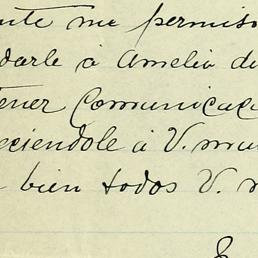 nte me permiso
darle á Amelia de
tener Comunicaci
eciendole á V. mu
bien todos V. m